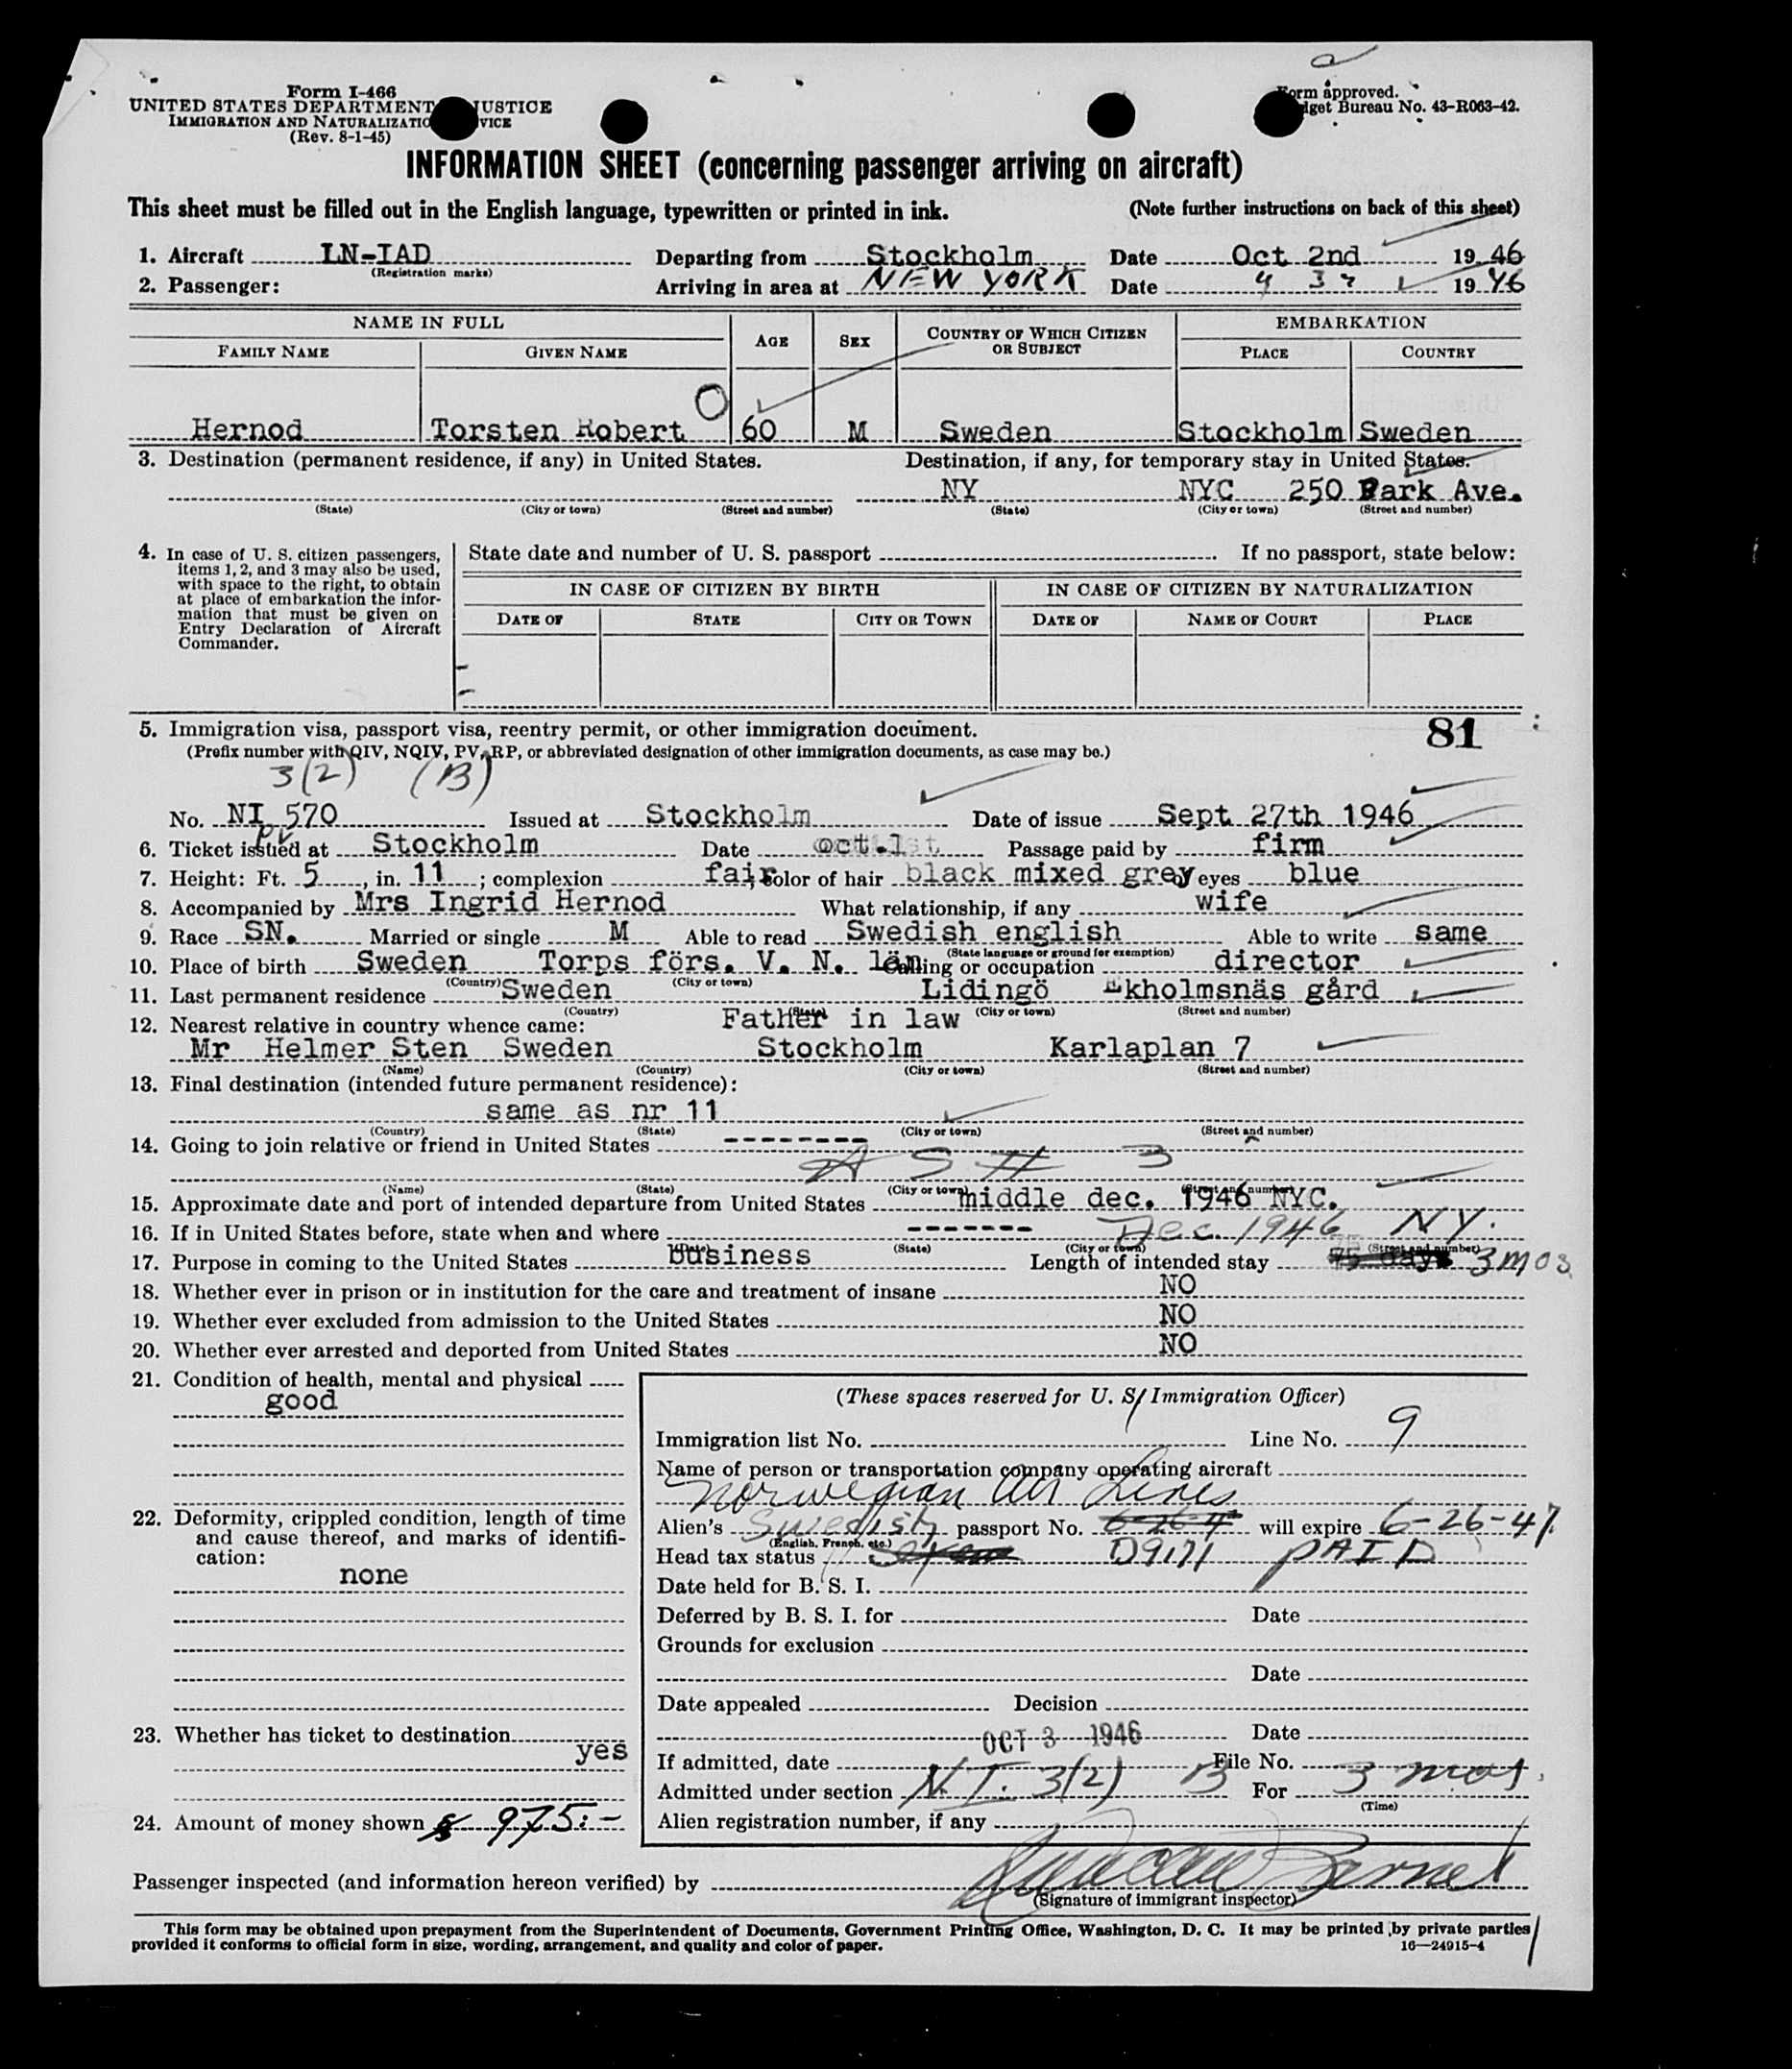 Form I-466
UNITED STATES DEPARTMENT JUSTICE
IMMIGRATION AND NATURALIZATIO VICE
(Rev. 8-1-45)
Form approved.
dget Bureau No. 43-R063-42.
INFORMATION SHEET (concerning passenger arriving on aircraft)
This sheet must be filled out in the English language, typewritten or printed in ink. (Note further instructions on back of this sheet)
1. Aircraft LN-IAD Departing from Stockholm Date Oct 2nd 1946
(Registration marks)
2. Passenger: Arriving in area at NEW YORK Date 1946
NAME IN FULL AGE SEX COUNTRY OF WHICH CITIZEN OR SUBJECT EMBARKATION
FAMILY NAME GIVEN NAME PLACE COUNTRY
Hernod Torsten Robert 60 M Sweden Stockholm Sweden
3. Destination (permanent residence, if any) in United States. Destination, if any, for temporary stay in United States.
NY NYC 250 Park Ave.
(State) (City or town) (Street and number) (State) (City or town) (Street and number)
4. In case of U. S. citizen passengers, items 1, 2, and 3 may also be used, with space to the right, to obtain at place of embarkation the information that must be given on Entry Declaration of Aircraft Commander.
State date and number of U. S. passport If no passport, state below:
IN CASE OF CITIZEN BY BIRTH IN CASE OF CITIZEN BY NATURALIZATION
DATE OF STATE CITY OR TOWN DATE OF NAME OF COURT PLACE
5. Immigration visa, passport visa, reentry permit, or other immigration document. 81
(Prefix number with QIV, NQIV, PV, RP, or abbreviated designation of other immigration documents, as case may be.)
3(2) (B)
No. NI 570 Issued at Stockholm Date of issue Sept 27th 1946
PV
6. Ticket issued at Stockholm Date oct.1st Passage paid by firm
7. Height: Ft. 5, in. 11; complexion fair, color of hair black mixed grey eyes blue
8. Accompanied by Mrs Ingrid Hernod What relationship, if any wife
9. Race SN. Married or single M Able to read Swedish english Able to write same
(State language or ground for exemption)
10. Place of birth Sweden Torps förs. V. N. län Calling or occupation director
(Country) (City or town)
11. Last permanent residence Sweden Lidingö Ekholmsnäs gård
(Country) (State) (City or town) (Street and number)
12. Nearest relative in country whence came: Father in law
Mr Helmer Sten Sweden Stockholm Karlaplan 7
(Name) (Country) (City or town) (Street and number)
13. Final destination (intended future permanent residence):
same as nr 11
(Country) (State) (City or town) (Street and number)
14. Going to join relative or friend in United States --------
A S H 3
(Name) (State) (City or town) (Street and number)
15. Approximate date and port of intended departure from United States middle dec. 1946 NYC.
16. If in United States before, state when and where ------- Dec 1946 NY.
(Date) (State) (City or town) (Street and number)
17. Purpose in coming to the United States business Length of intended stay 75 days 3 mos
18. Whether ever in prison or in institution for the care and treatment of insane NO
19. Whether ever excluded from admission to the United States NO
20. Whether ever arrested and deported from United States NO
21. Condition of health, mental and physical
good
22. Deformity, crippled condition, length of time and cause thereof, and marks of identification:
none
23. Whether has ticket to destination
yes
24. Amount of money shown $ 975:-
(These spaces reserved for U. S. Immigration Officer)
Immigration list No. Line No. 9
Name of person or transportation company operating aircraft
Norwegian Air Lines
Alien's Swedish passport No. 6-26-4 will expire 6-26-47
(English, French, etc.)
Head tax status D9171 PAID
Date held for B. S. I.
Deferred by B. S. I. for Date
Grounds for exclusion
Date
Date appealed Decision
OCT 3 1946 Date
If admitted, date File No.
Admitted under section N.I. 3(2) B For 3 mos.
(Time)
Alien registration number, if any
Passenger inspected (and information hereon verified) by
(Signature of immigrant inspector)
This form may be obtained upon prepayment from the Superintendent of Documents, Government Printing Office, Washington, D. C. It may be printed by private parties
provided it conforms to official form in size, wording, arrangement, and quality and color of paper. 16—24915-4